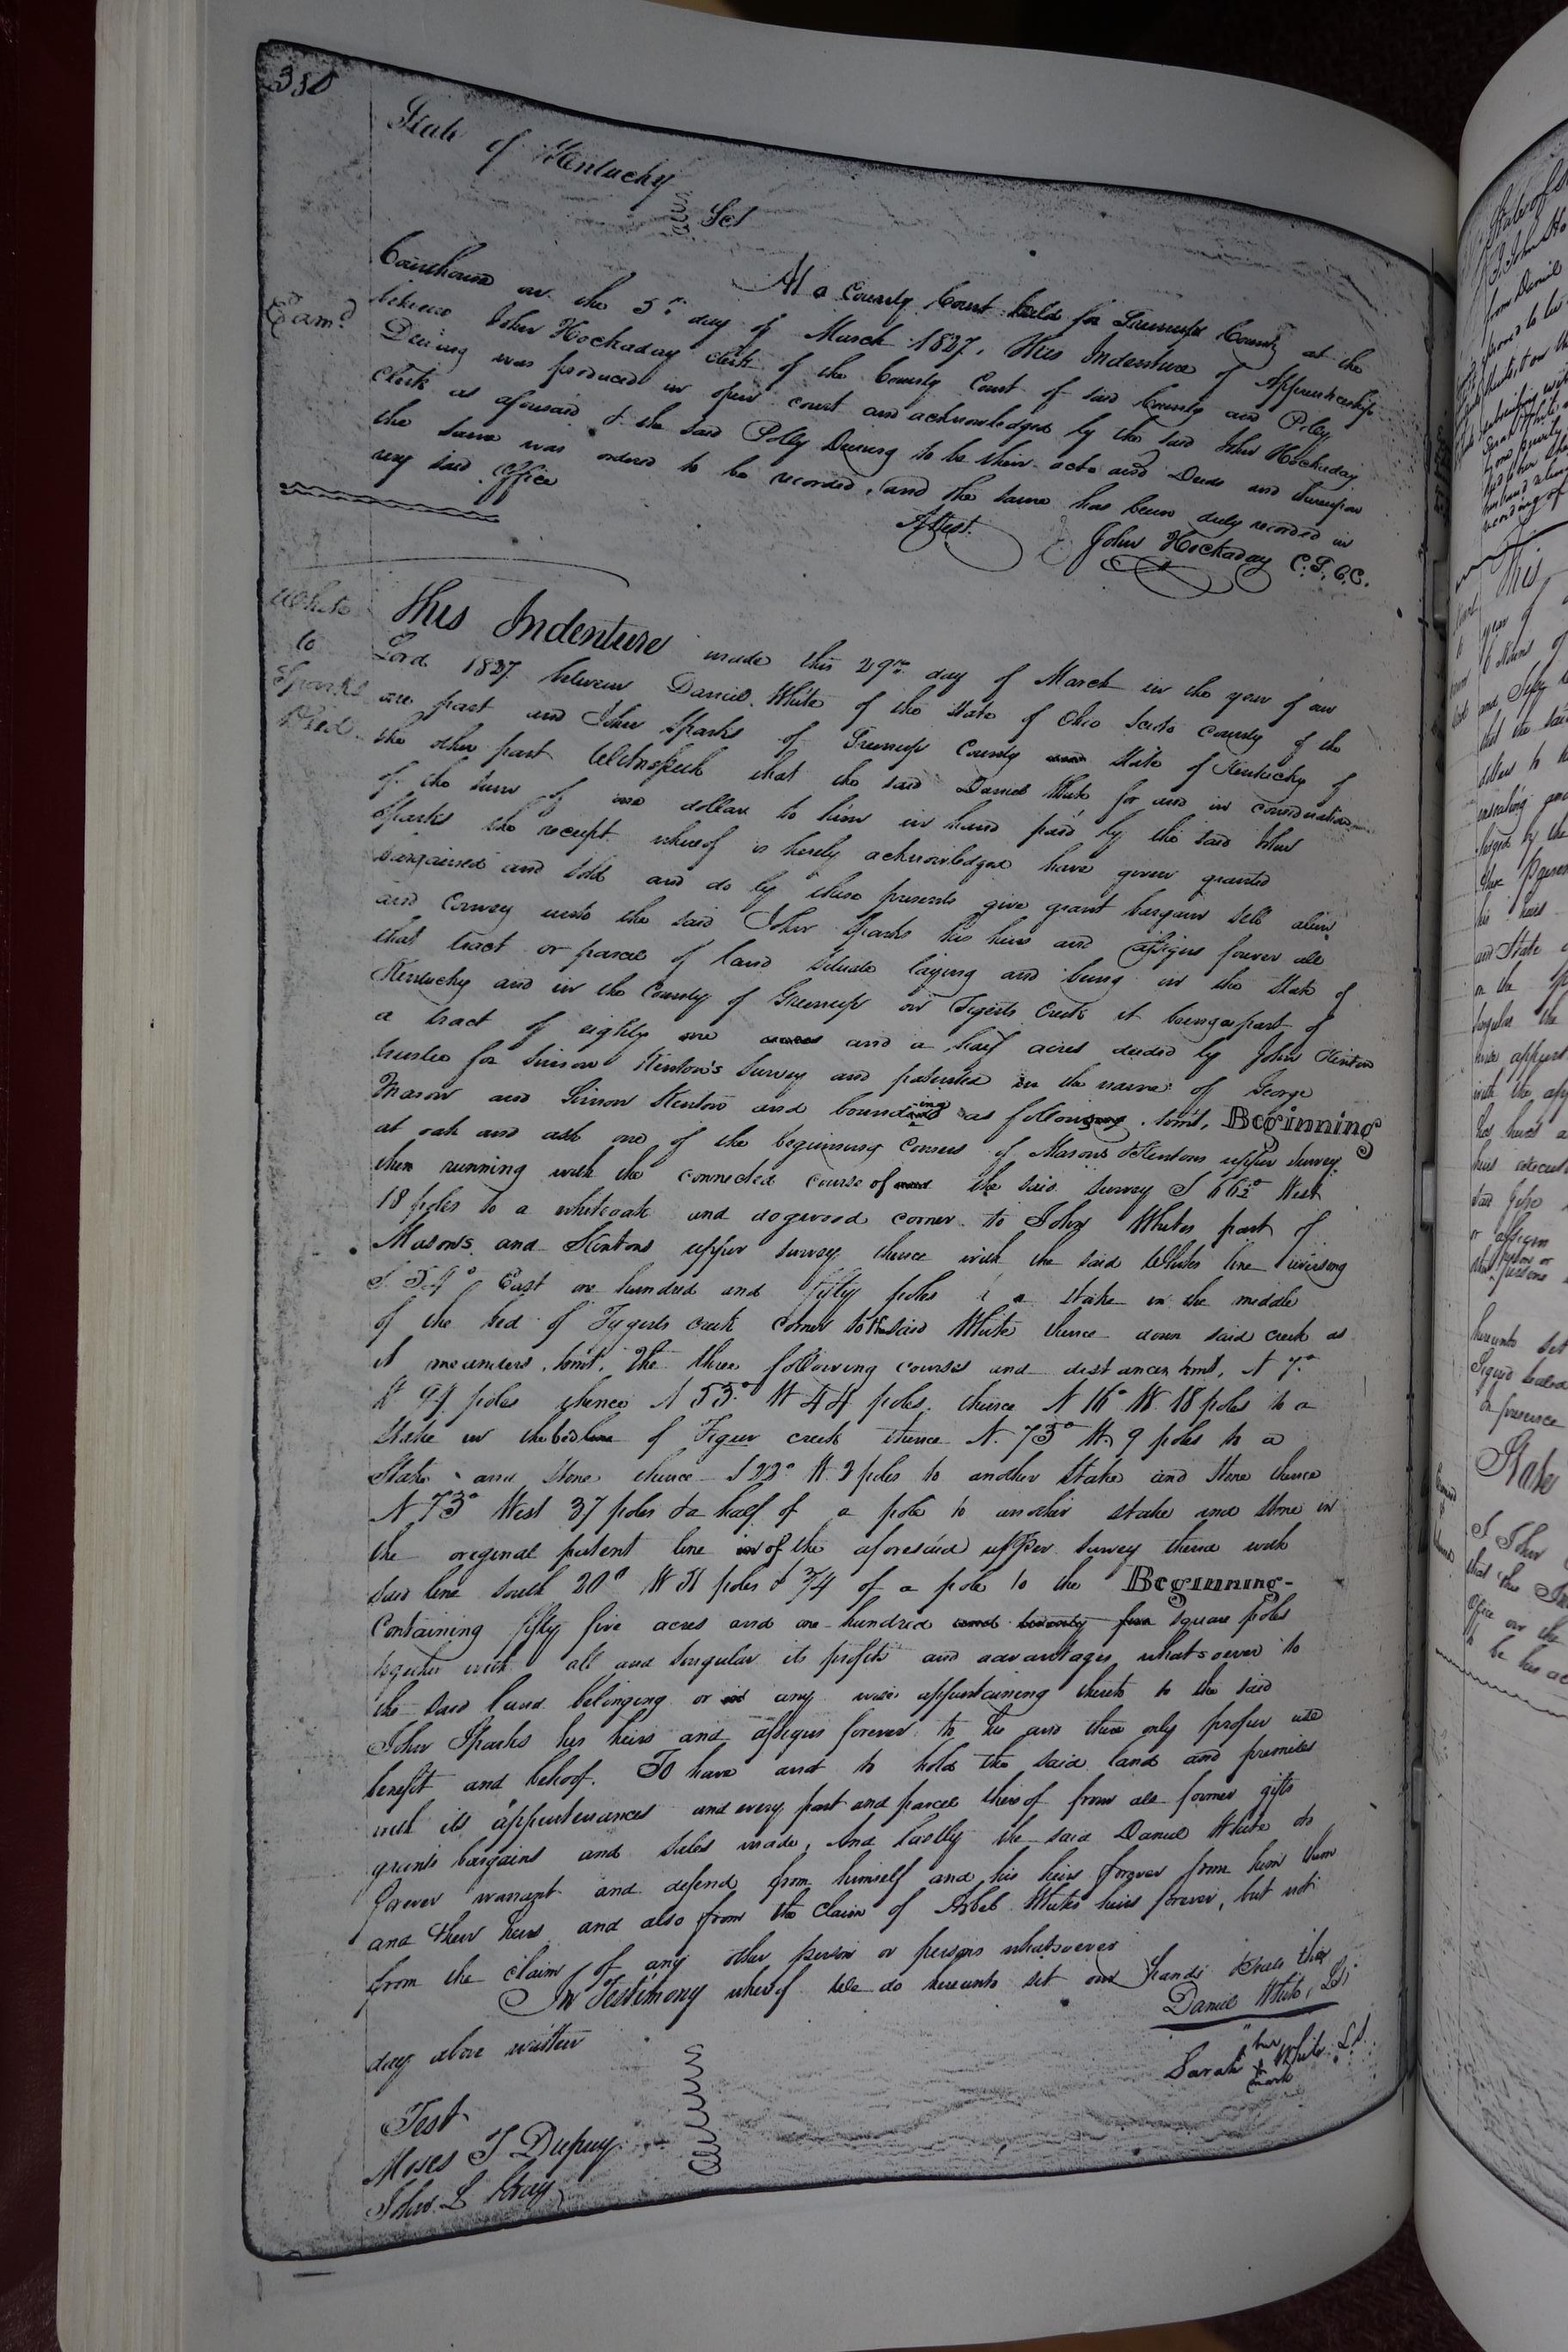 350
State of Kentucky
Sct
At a County Court held for Greenup County at the
Courthouse on the 5th day of March 1827, This Indenture of Apprenticeship
Exam.d
between John Hockaday clerk of the County Court of said County and Polly
Deering was produced in open court and acknowledged by the said John Hockaday
clerk as aforesaid & the said Polly Deering to be their acts and Deeds and thereupon
the same was ordered to be recorded, and the same has been duly recorded in
my said Office
Attest.
John Hockaday C.G.C.C.
White
to
Sparks
Deed
This Indenture made this 29th day of March in the year of our
Lord 1827 between Daniel White of the State of Ohio Scioto County of the
one part and John Sparks of Greenup County State of Kentucky of
the other part Witnesseth that the said Daniel White for and in consideration
of the sum of one dollar to him in hand paid by the said John
Sparks the receipt whereof is hereby acknowledged have given granted
bargained and sold and do by these presents give grant bargain sell alien
and Convey unto the said John Sparks his heirs and assigns forever all
that tract or parcel of land situate laying and being in the State of
Kentucky and in the County of Greenup on Tigerts Creek it being a part of
a tract of eighty one and a half acres deeded by John Kenton
trustee for Simon Kenton's Survey and patented in the name of George
Mason and Simon Kenton and bounding as following. towit, Beginning
at oak and ash one of the beginning Corners of Masons & Kentons upper Survey
then running with the connected course of the said survey S 66½° West
18 poles to a whiteoak and dogwood corner to John Whites part of
Masons and Kentons upper survey thence with the said Whites line
S 54° East one hundred and fifty poles a stake in the middle
of the bed of Tygerts creek corner to the said White thence down said creek as
it meanders. towit. The three following courses and distances towit, N 7°
W 94 poles thence N 53° W 44 poles. thence N 16° W. 18 poles to a
Stake in the bed of Tiger creek thence N. 73° W 9 poles to a
Stake and Stone thence S 22° W. 2 poles to another Stake and Stone thence
N 73° West 37 poles & a half of a pole to another stake and stone in
the original patent line of the aforesaid upper survey thence with
said line South 20° W 51 poles & 3/4 of a pole to the Beginning-
Containing fifty five acres and one hundred square poles
together with all and singular its profits and advantages whatsoever to
the said land belonging or in any wise appertaining thereto to the said
John Sparks his heirs and assigns forever to his and there only proper use
benefit and behoof. To have and to hold the said land and premises
with its appurtenances and every part and parcel thereof from all former gifts
grants bargains and sales made. And lastly the said Daniel White do
forever warrant and defend from himself and his heirs forever from him them
and their heirs and also from the claim of Whites heirs forever, but not
from the claim of any other person or persons whatsoever
In Testimony whereof we do hereunto set our hands & seals the
day above written
Daniel White, L.S.
her
Sarah X White L.S.
mark
Test
Moses T Dupuy
John L